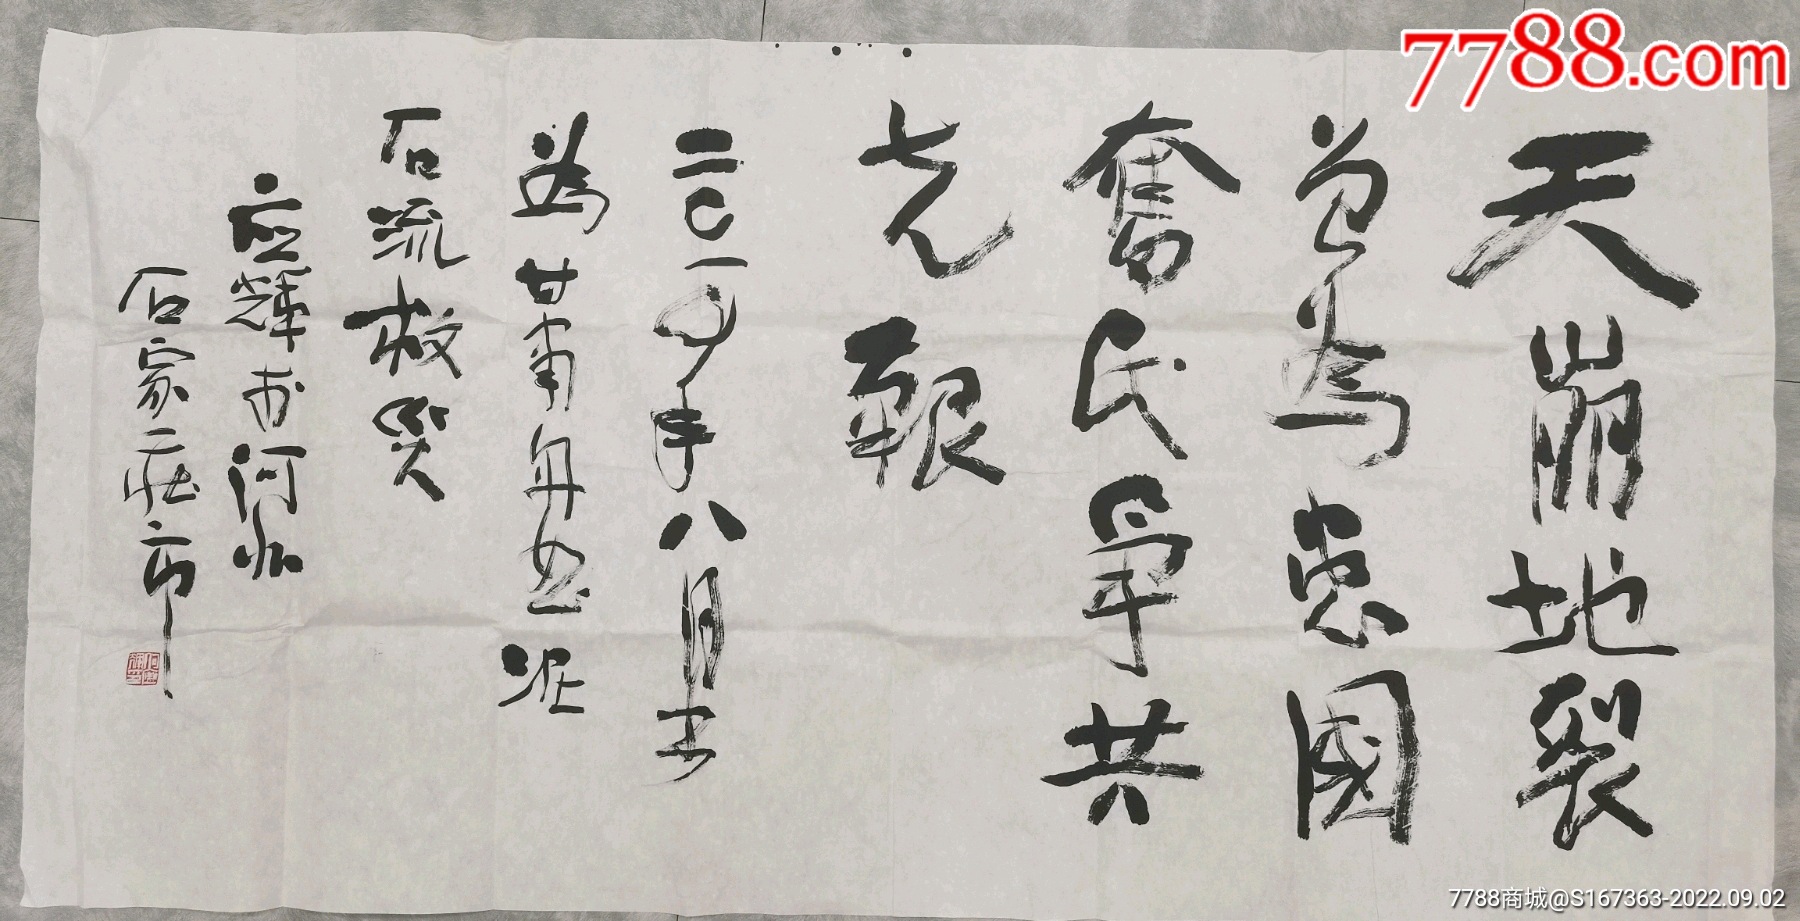 天崩地裂
曾為患國
奮民爭共
克艱
二〇一〇年八月书
為甘肃舟曲泥
石流救災
应輝书河北
石家庄市
7788.com
7788商城@S167363-2022.09.02